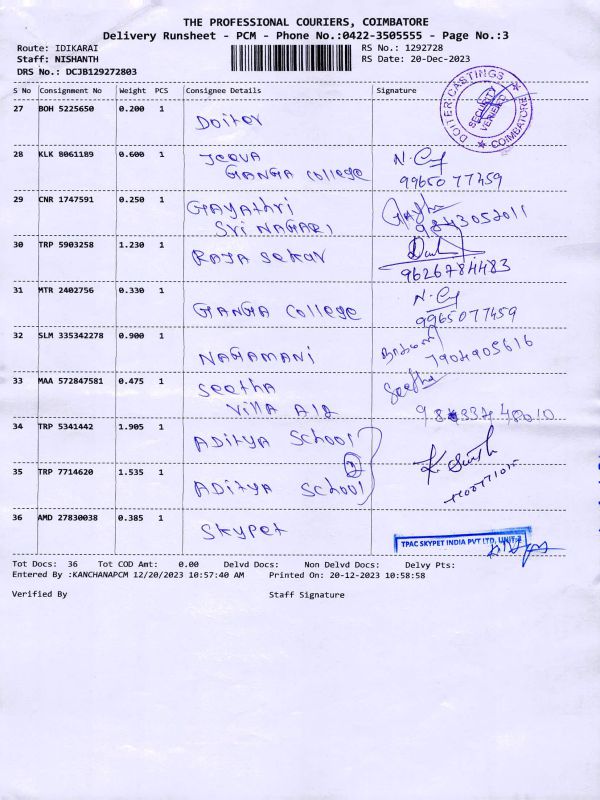 THE PROFESSIONAL COURIERS, COIMBATORE
Delivery Runsheet - PCM - Phone No.:0422-3505555 - Page No.:3
Route: IDIKARAI RS No.: 1292728
Staff: NISHANTH RS Date: 20-Dec-2023
DRS No.: DCJB129272803
S No Consignment No Weight PCS Consignee Details Signature
DOITER CASTINGS COIMBATORE
SECURITY VERIFIED
27 BOH 5225650 0.200 1 Doiter
28 KLK 8061189 0.600 1 Jeeva
Ganga College
9965077459
29 CNR 1747591 0.250 1 Gayathri
Sri Nagari
9843052011
30 TRP 5903258 1.230 1 Raja Sekar
9626784483
31 MTR 2402756 0.330 1 Ganga College
9965077459
32 SLM 335342278 0.900 1 Nagamani
7904905616
33 MAA 572847581 0.475 1 Seetha
Villa A12
Seetha
34 TRP 5341442 1.905 1 Aditya School
2
35 TRP 7714620 1.535 1 Aditya School
36 AMD 27830038 0.385 1 Skypet
TPAC SKYPET INDIA PVT LTD, UNIT-2
Tot Docs: 36 Tot COD Amt: 0.00 Delvd Docs: Non Delvd Docs: Delvy Pts:
Entered By :KANCHANAPCM 12/20/2023 10:57:40 AM Printed On: 20-12-2023 10:58:58
Verified By Staff Signature